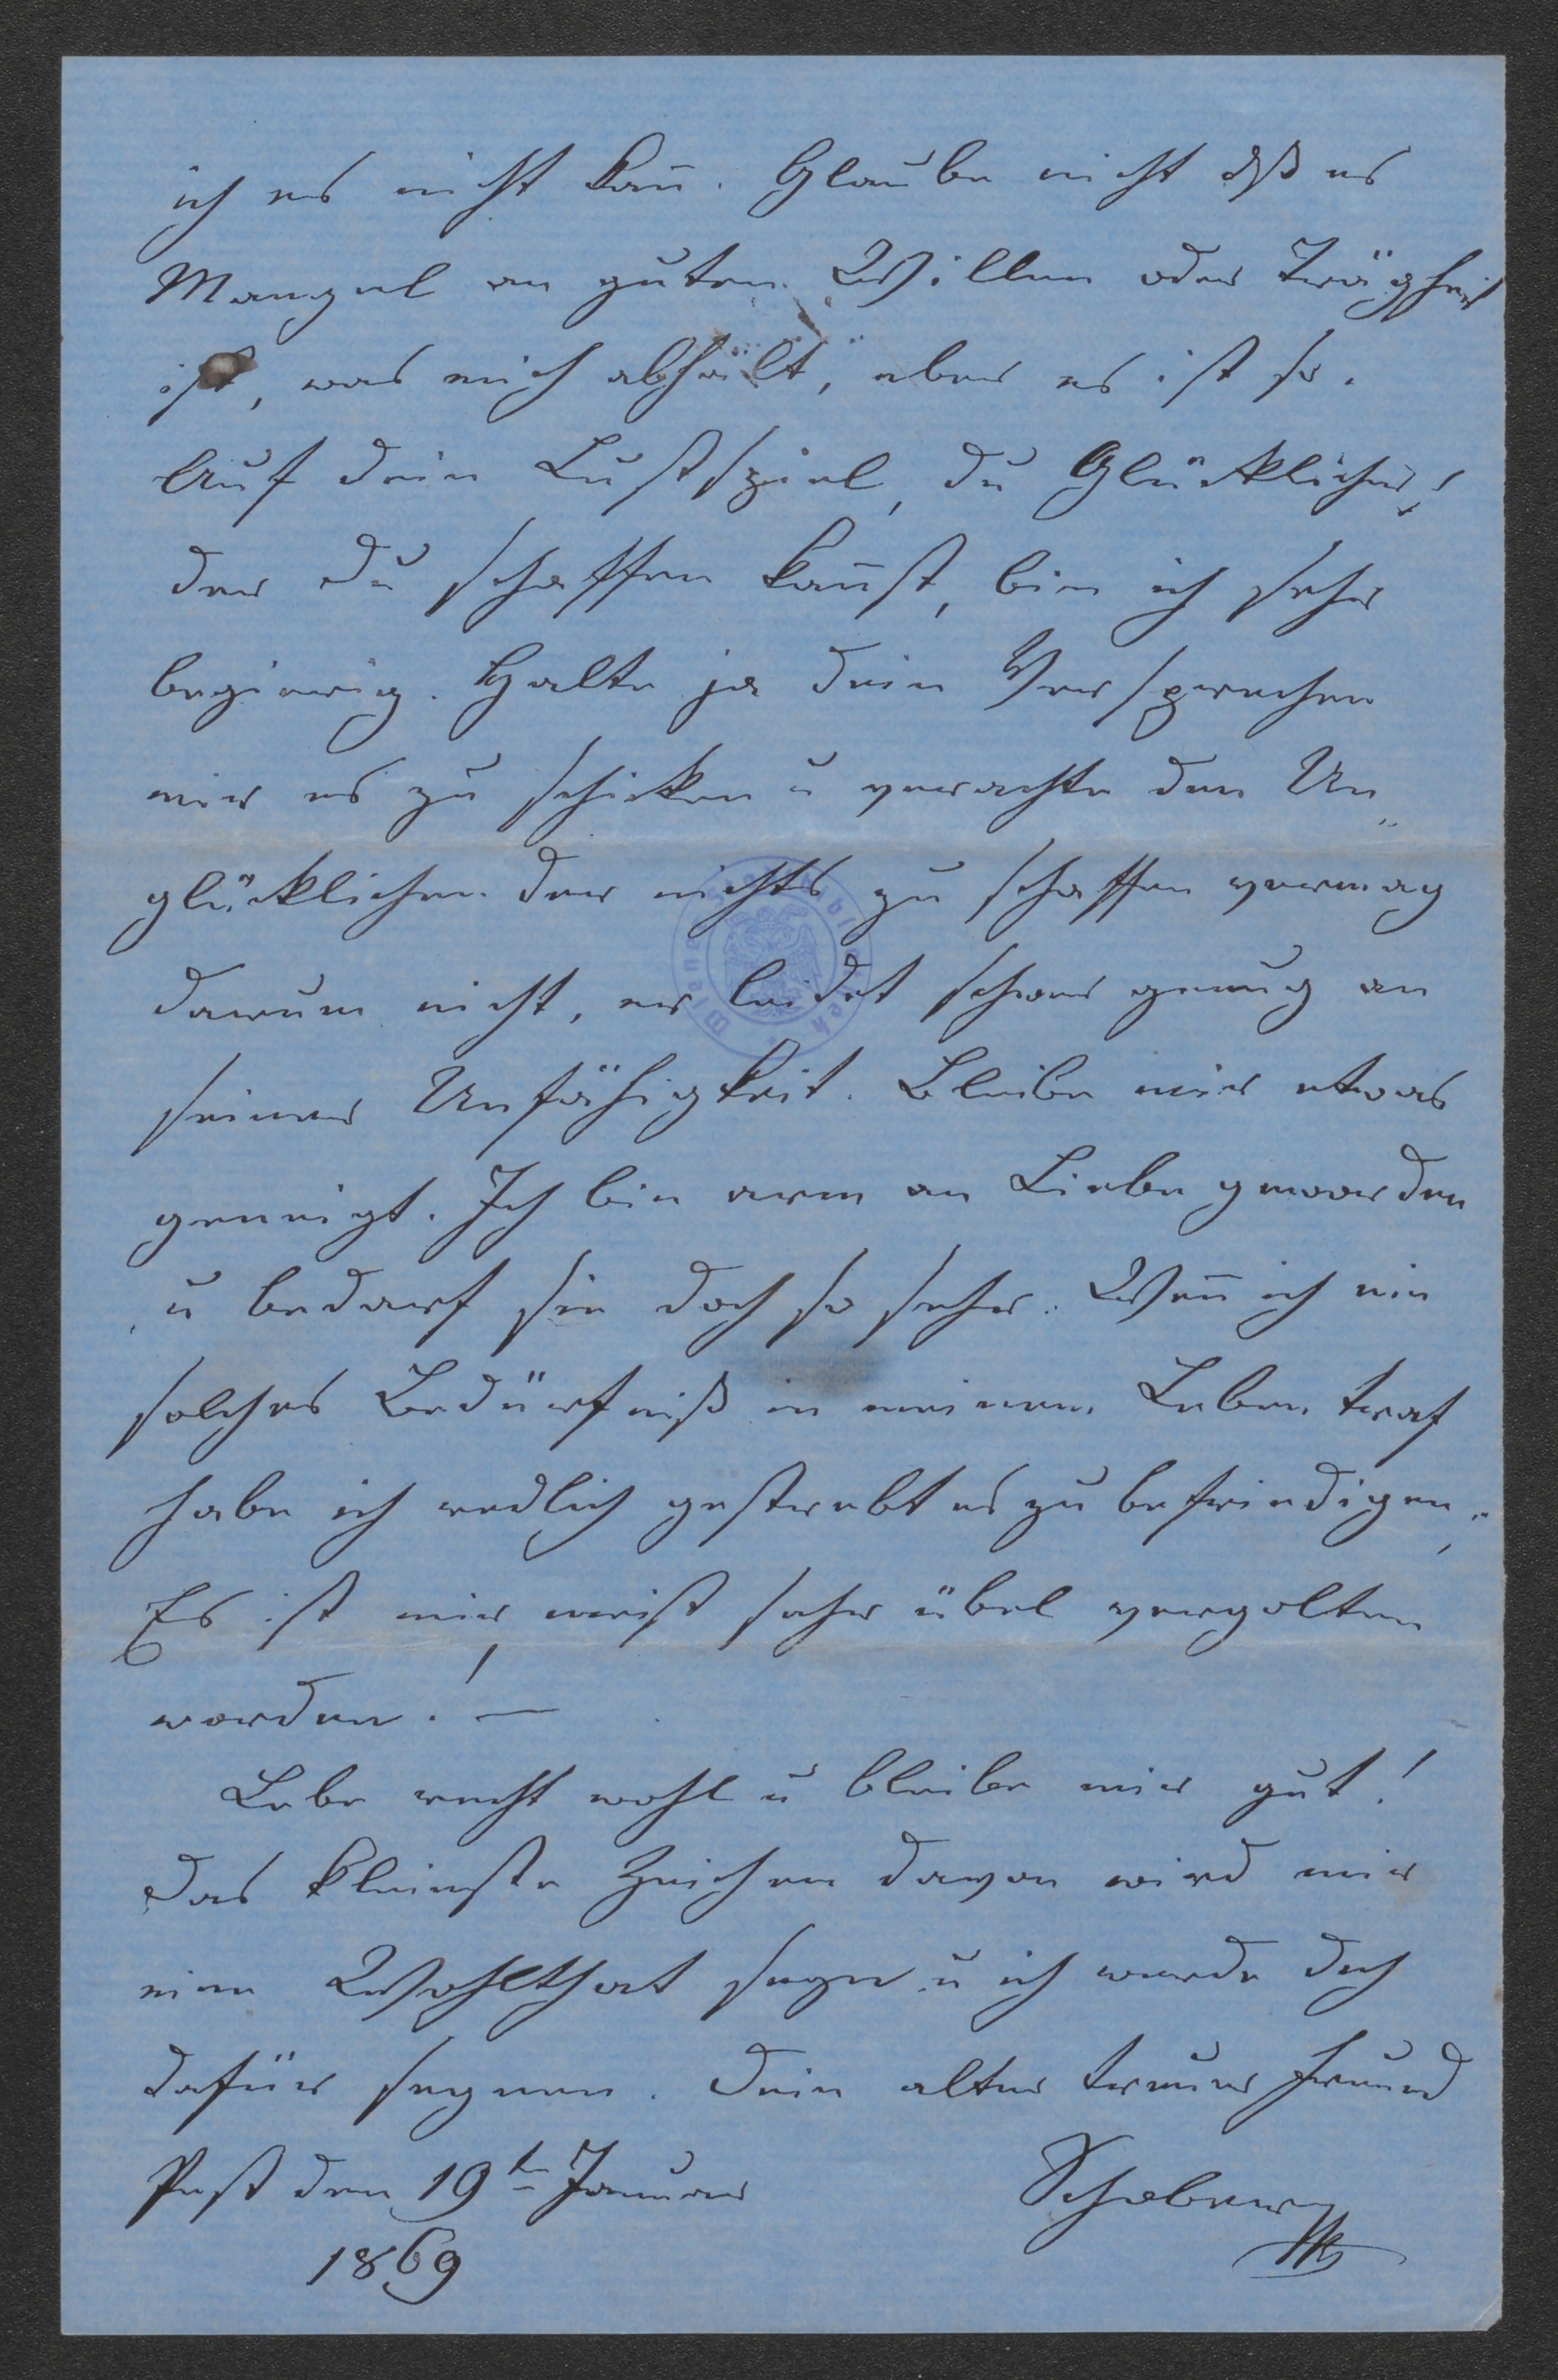 ich es nicht kan̄. Glaube nicht dß es
Mangel an guten Willen oder Trägheit
ist, was mich abhält, aber es ist so.
Auf dein Lustspiel, du Glücklicher!
der du schaffen kan̄st, bin ich sehr
begierig. Halte ja dein Versprechen
mir es zu schicken u verachte den Un„
glücklichen der nichts zu schaffen vermag
darum nicht, er leidet schwer genug an
seiner Unfähigkeit. Bleibe mir etwas
geneigt. Ich bin arm an Liebe geworden
u bedarf sie doch so sehr. Wen̄ ich ein
solches Bedürfniß in meinem Leben traf
habe ich redlich gestrebt es zu befriedigen;
Es ist mir meist sehr übel vergolten
worden! —
Lebe recht wohl u bleibe mir gut!
Das kleinste Zeichen davon wird mir
eine Wohlthat seyn u ich werde dich
dafür segnen. Dein alter treuer Freund
Pest den 19t Januar
Schober
1869
Wiener Stadtbibliothek